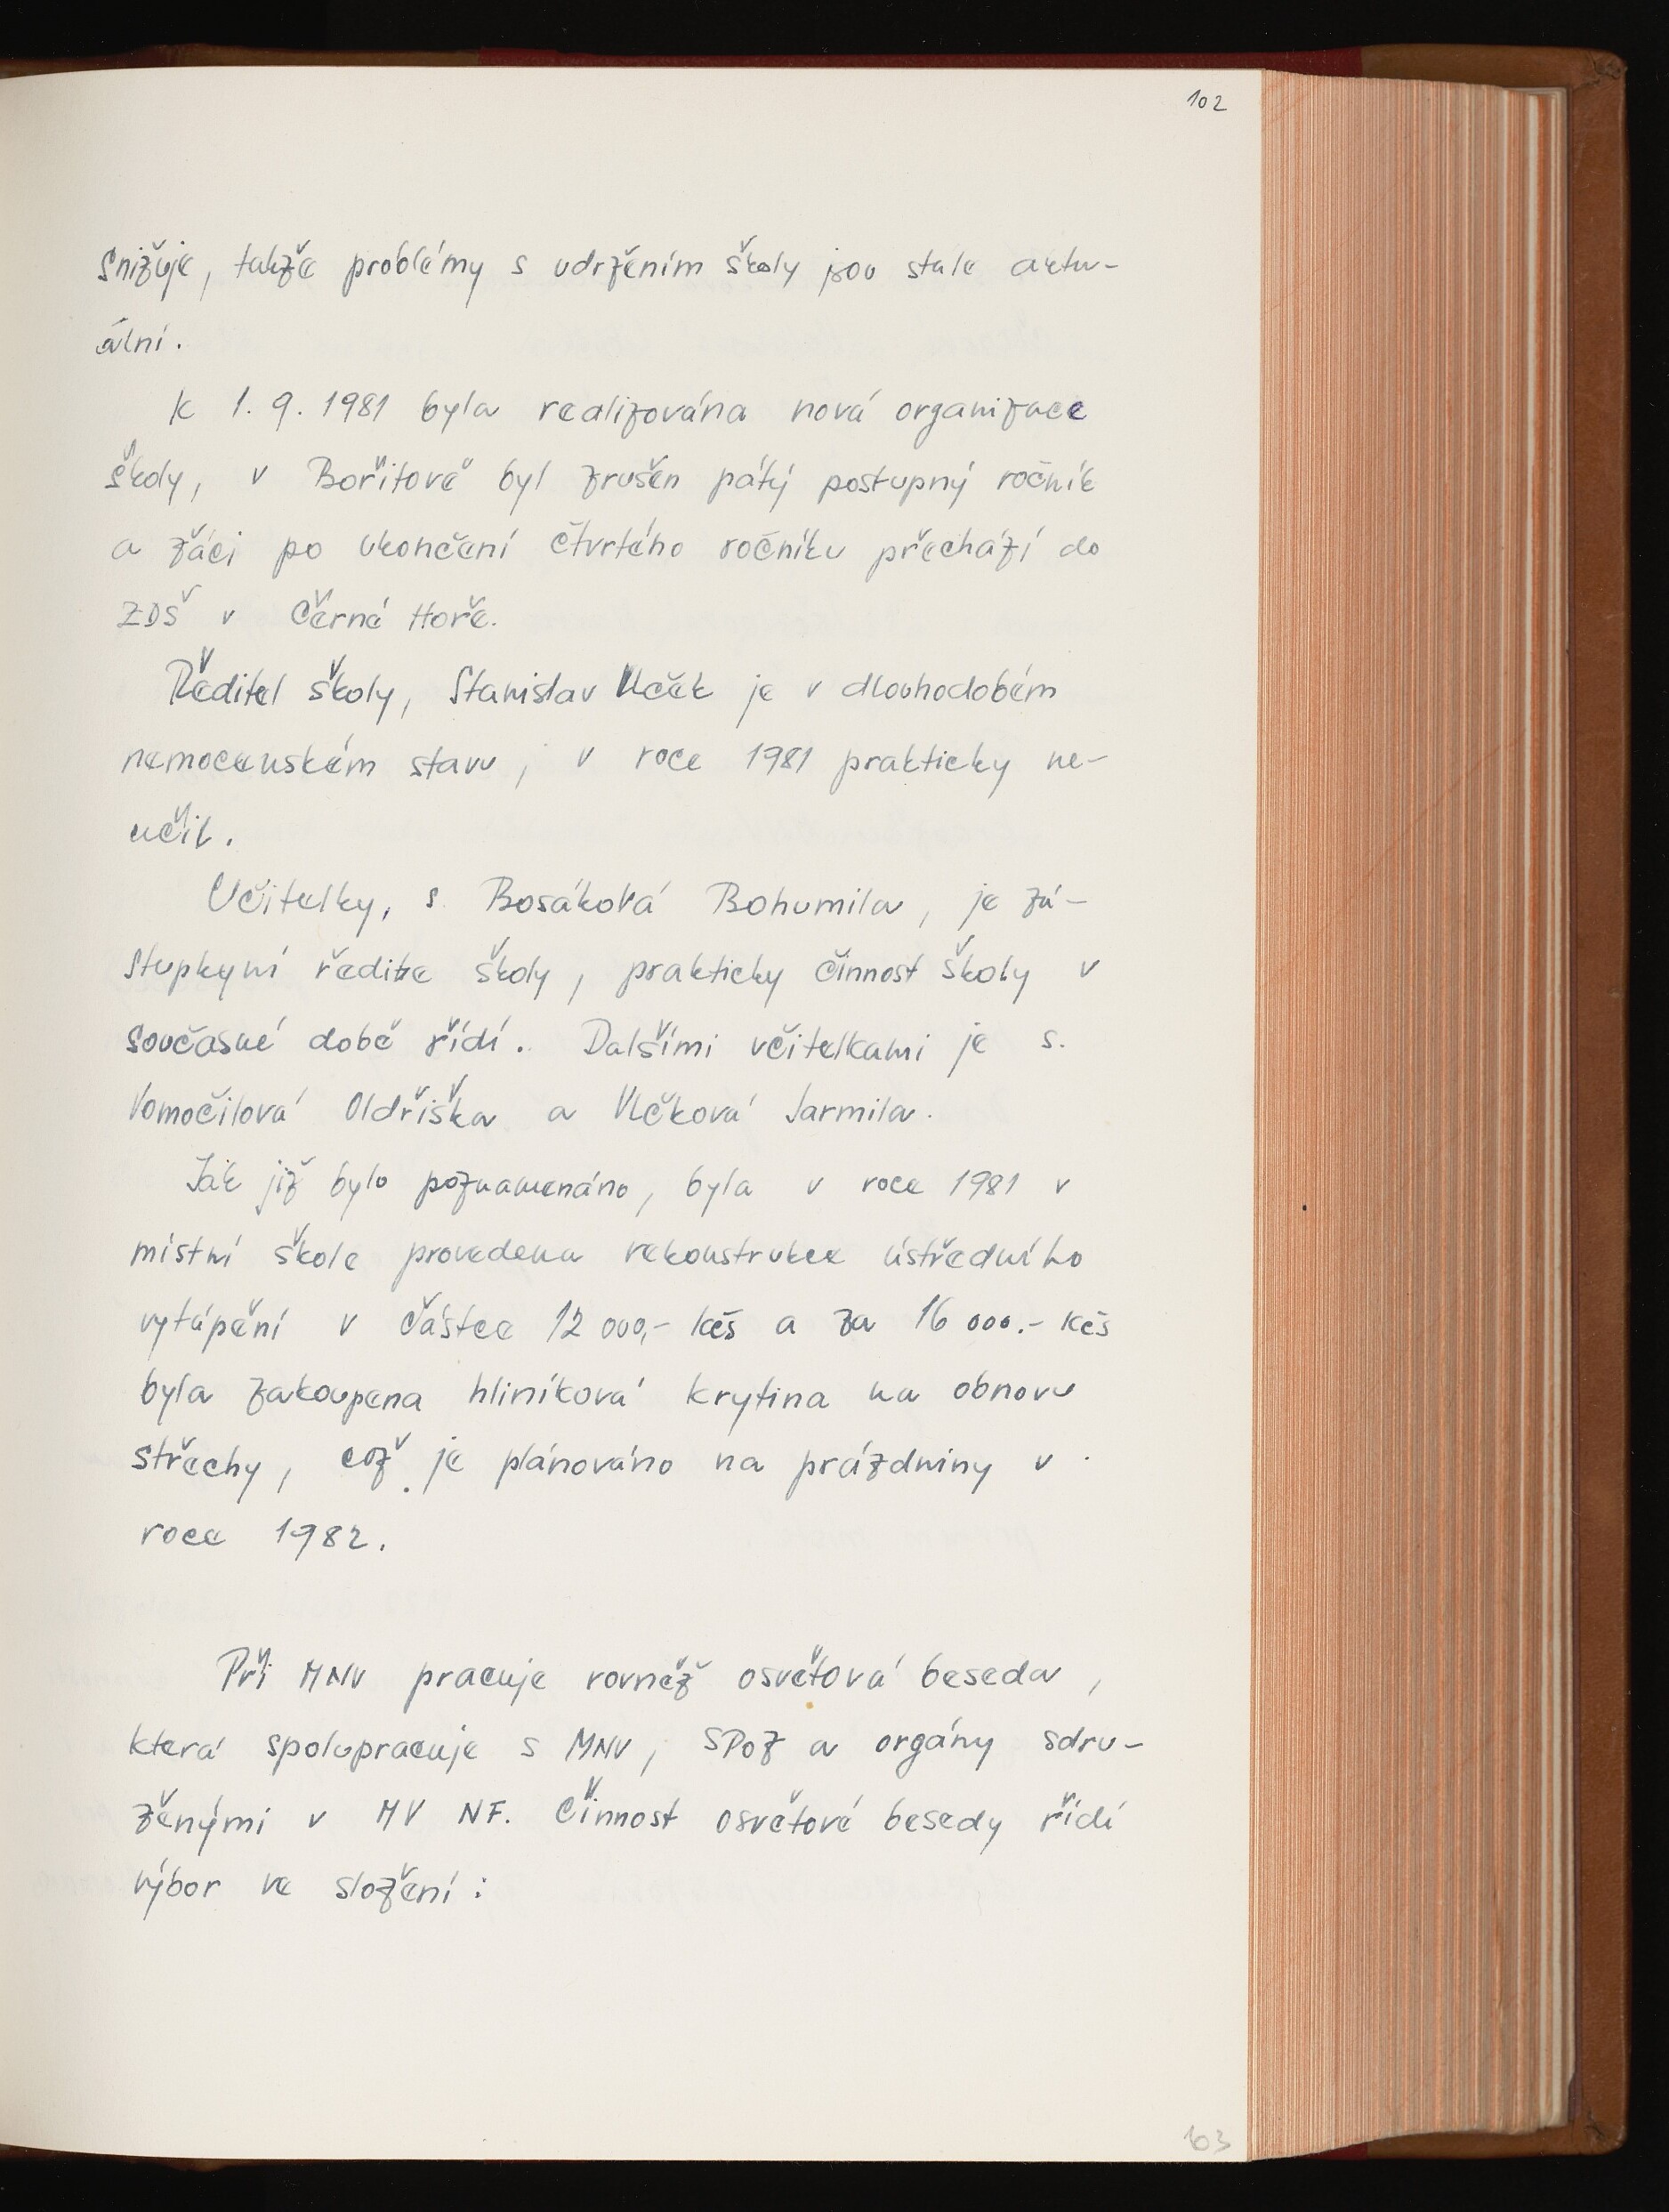 102
snižuje, takže problémy s udržením školy jsou stale aktu-
ální.
K 1. 9. 1981 byla realizována nová organizace
školy, v Bořitově byl zrušen pátý postupný ročník
a žáci po ukončení čtvrtého ročníku přechází do
ZDŠ v Černé Hoře.
Ředitel školy, Stanislav Vlček je v dlouhodobém
nemocenském stavu, v roce 1981 prakticky ne-
učil.
Učitelky, s. Bosáková Bohumila, je zá-
stupkyní ředite školy, prakticky činnost školy v
současné době řídí. Dalšími učitelkami je s.
Vomočilová Oldřiška a Vlčková Jarmila.
Jak již bylo poznamenáno, byla v roce 1981 v
místní škole provedena rekonstrukce ústředního
vytápění v částce 12 000,- kčs a za 16 000.- kčs
byla zakoupena hliníková krytina na obnovu
střechy, což je plánováno na prázdniny v
roce 1982.
Při MNV pracuje rovněž osvětová beseda,
která spolupracuje s MNV, SPoz a orgány sdru-
ženými v MV NF. Činnost osvětové besedy řídí
výbor ve složení:
103